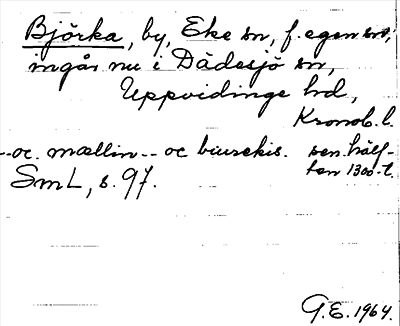 Björka, by, Eke sn, f. egen sn,
ingår nu i Dädesjö sn,
Uppvidinge hd,
Kronob. l.
--oc. mællin -- oc biurekis. sen. hälf-
ten 1300-t.
SmL, s. 97.
G.E. 1964.